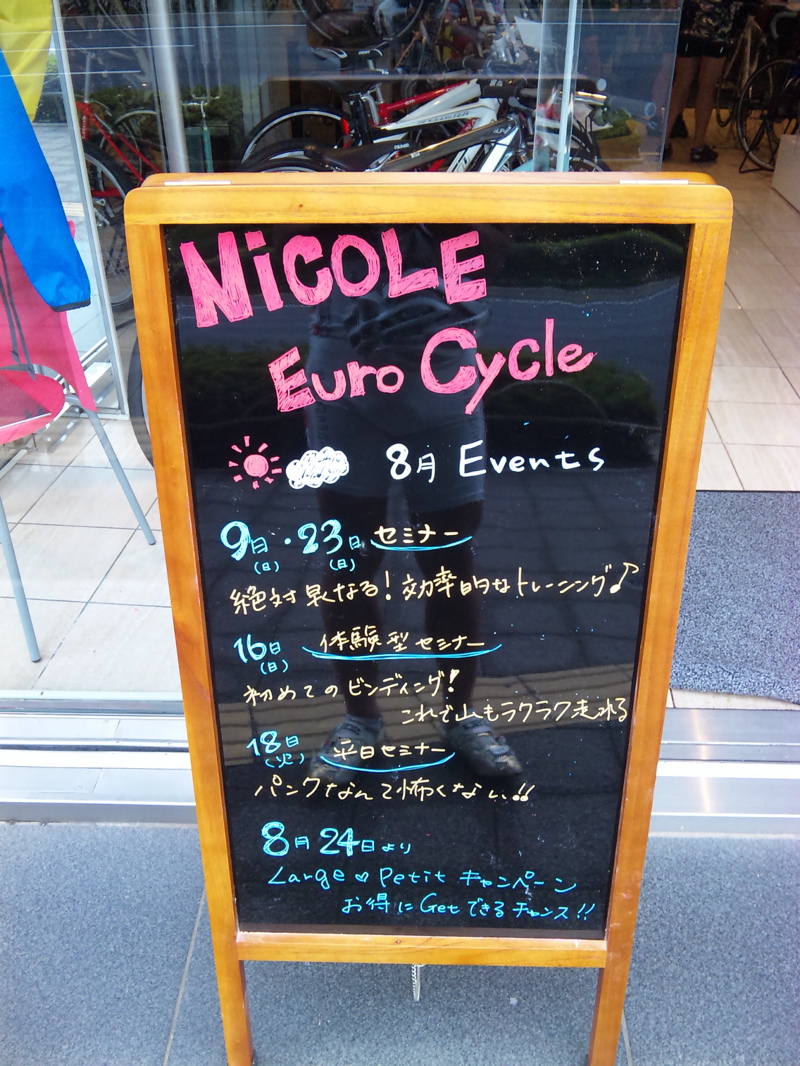 NiCOLE
Euro Cycle
8月 Events
9日・23日 セミナー
(日) (日)
絶対早くなる！効率的なトレーニング♪
16日 体験型セミナー
(日)
初めてのビンディング！
これで山もラクラク走れる
18日 平日セミナー
(火)
パンクなんて怖くない!!
8月24日より
Large♡Petit キャンペーン
お得にGetできるチャンス!!